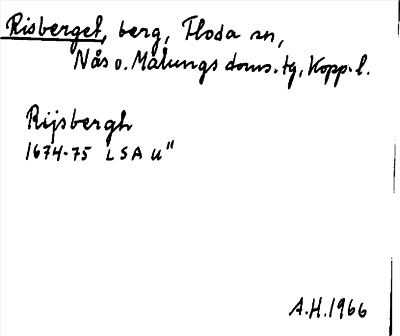 Risberget, berg, Floda sn,
Nås o. Malungs doms. tg, Kopp. l.
Rijsbergh
1674-75 LSA U"
A.H. 1966